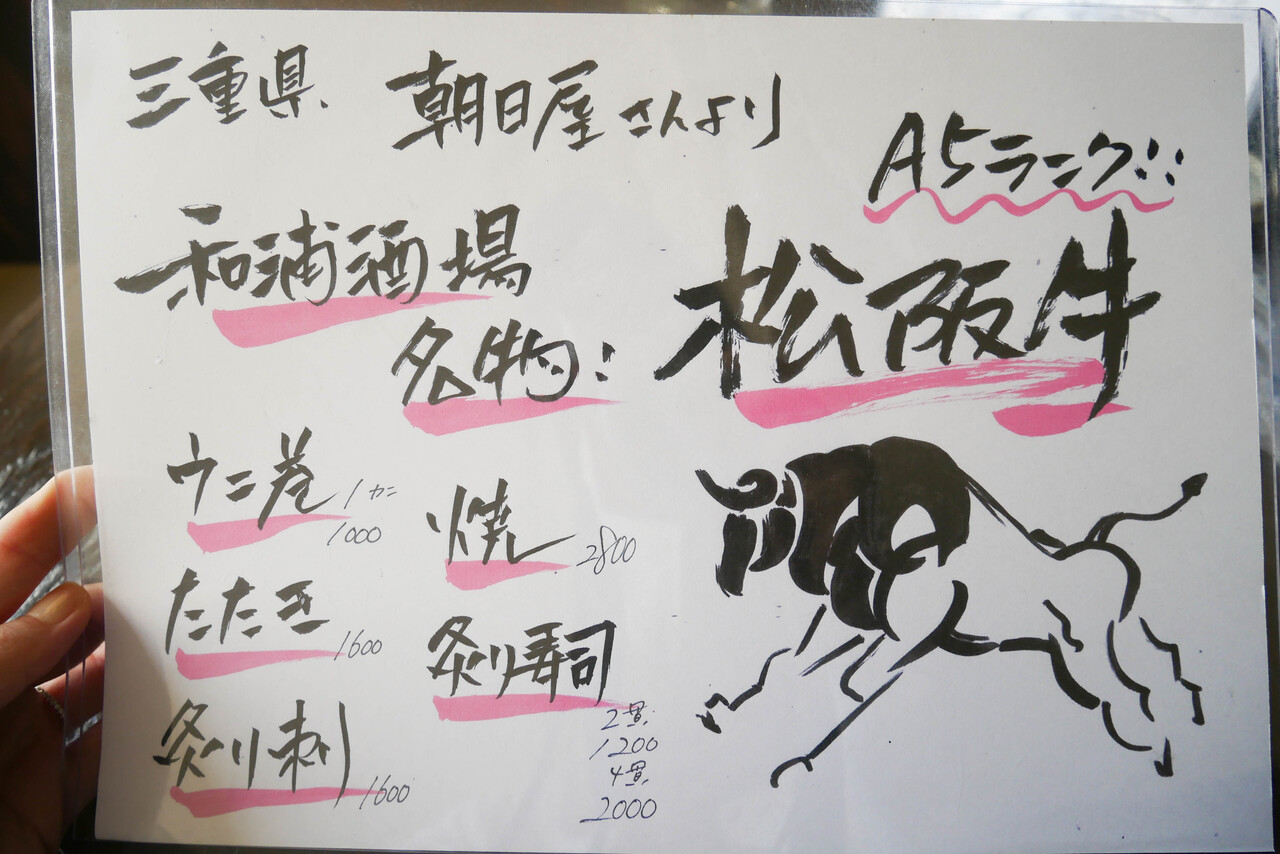 三重県 朝日屋さんより
A5ランク!!
和浦酒場
名物!
松阪牛
ウニ巻 1カン
1000
たたき 1600
炙り刺 1600
焼 2800
炙り寿司
2貫
1200
4貫
2000